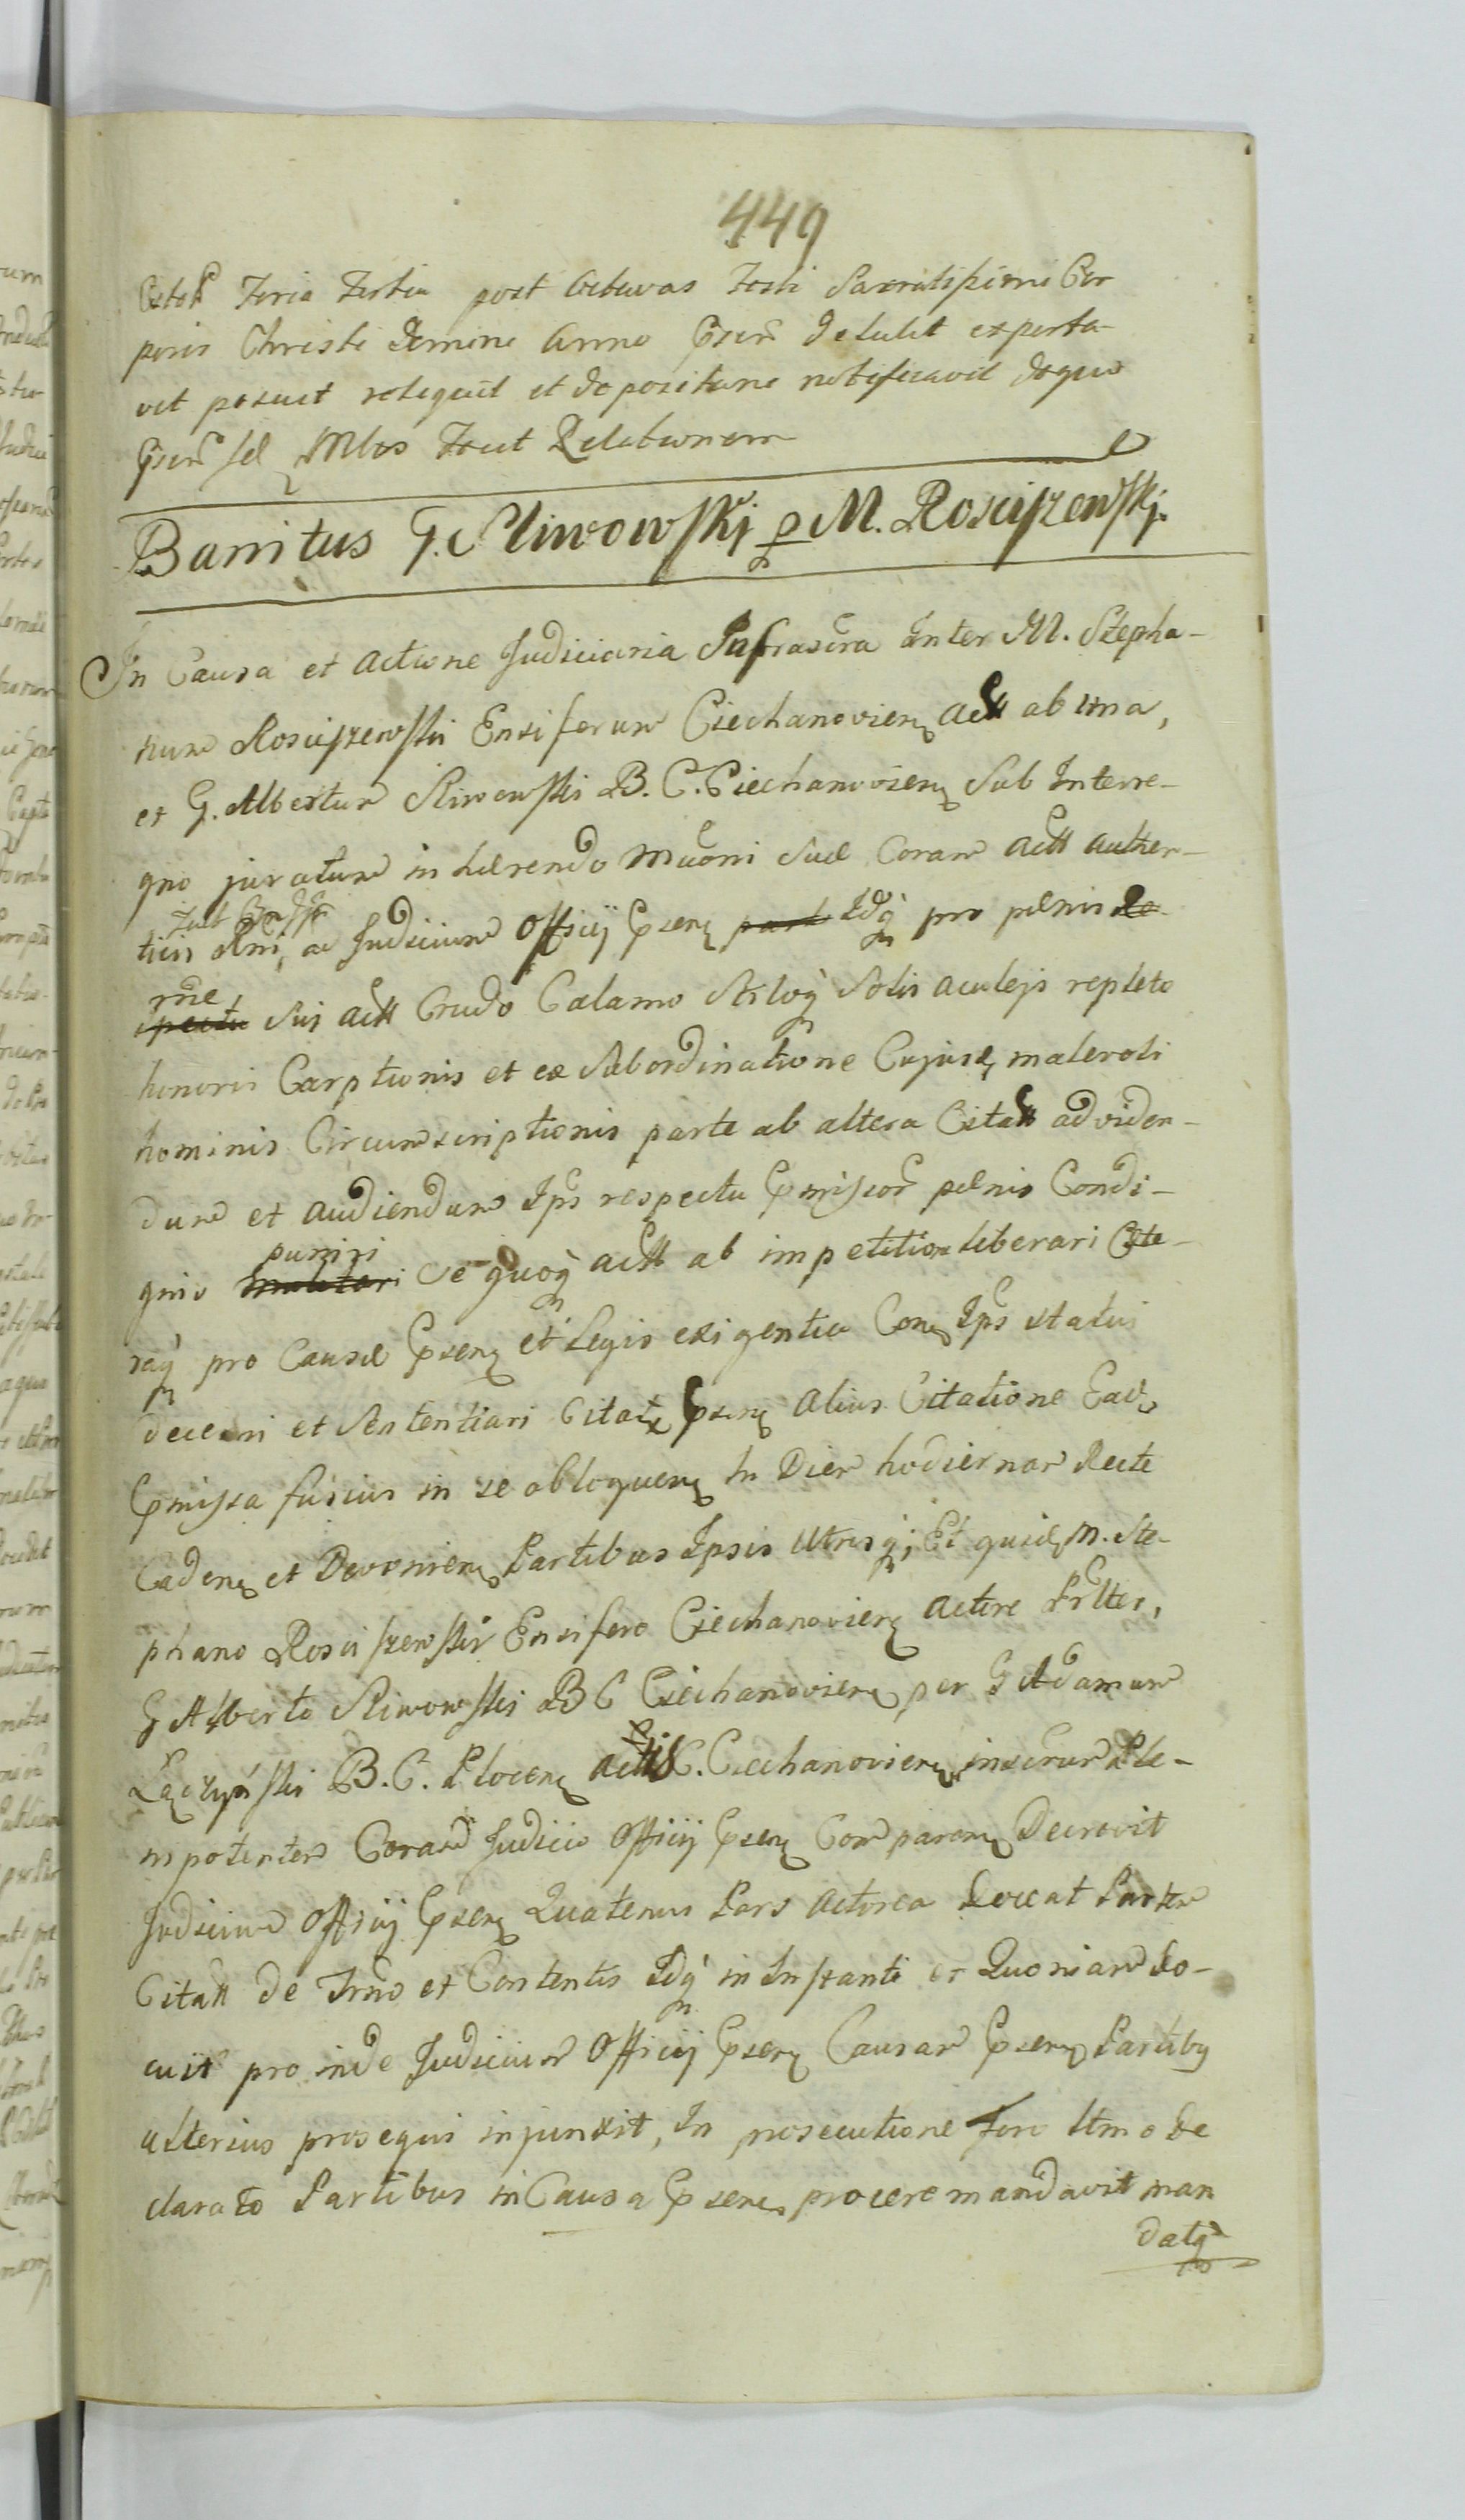 449
Feria Tertia post Octavas Festi Sacratissimi Cor
poris Christi Domini Anno detulit exporta-
vit posuit reliquit et de positione notificavit deque
Mbis Fecit Relationem
Banitus G. Sliwowskj p M. Rosciszewskj.
In Causa et Actione Judiciaria Infrascra Inter M. Stepha-
num Rosciszewski Ensiferum Ciechanovien Actt ab una,
et G. Albertum Sliwowski B. C. Ciechanovien Sub Interre-
gno juratum inhærendo Suæ Coram Actt authen-
ticis ac Judicium Officij Pseni Idq pro pænis Re-
rne Sui Actt Crudo Calamo Stiloq aculejs repleto
honoris Carptionis et ex Subordinatione Cujusd malevoli
hominis Circumscriptionis parte ab altera Citatt ad viden-
dum et audiendum Ips respectu Pmissor pænis Condi-
gnis puniri Se quoq Actt ab impetitione liberari Cæte-
raq pro Causæ Psen et Legis exigentia Con Ips statui
decerni et Sententiari Citat Psen Alias Citatione Ead
Pmissa fusius in se obloquen In Diem hodiernam Recte
Caden et Devenien Partibus Ipsis Utrisq; Et quid M. Ste-
phano Rosciszewski Ensifero Ciechanovien Actore Prlter,
G Alberto Sliwowski B C Ciechanovien per G Adamum
Łączyński B. C. Plocen Actis C. Ciechanovien inscrum Ple-
nipotentem Coram Judicio Officij Psen Comparen Decrevit
Judicium Officij Psen Quatenus Pars Actorea doceat Partem
Citatt de Trno et Contentis Idq in Instanti et Quoniam do-
cuit pro inde Judicium Officij Psen Causam Psen Partibg
ulterius prosequi injunxit, In prosecutione Foro Utmo de
clarato Partibus in Causa Psen procere mandavit man
datq